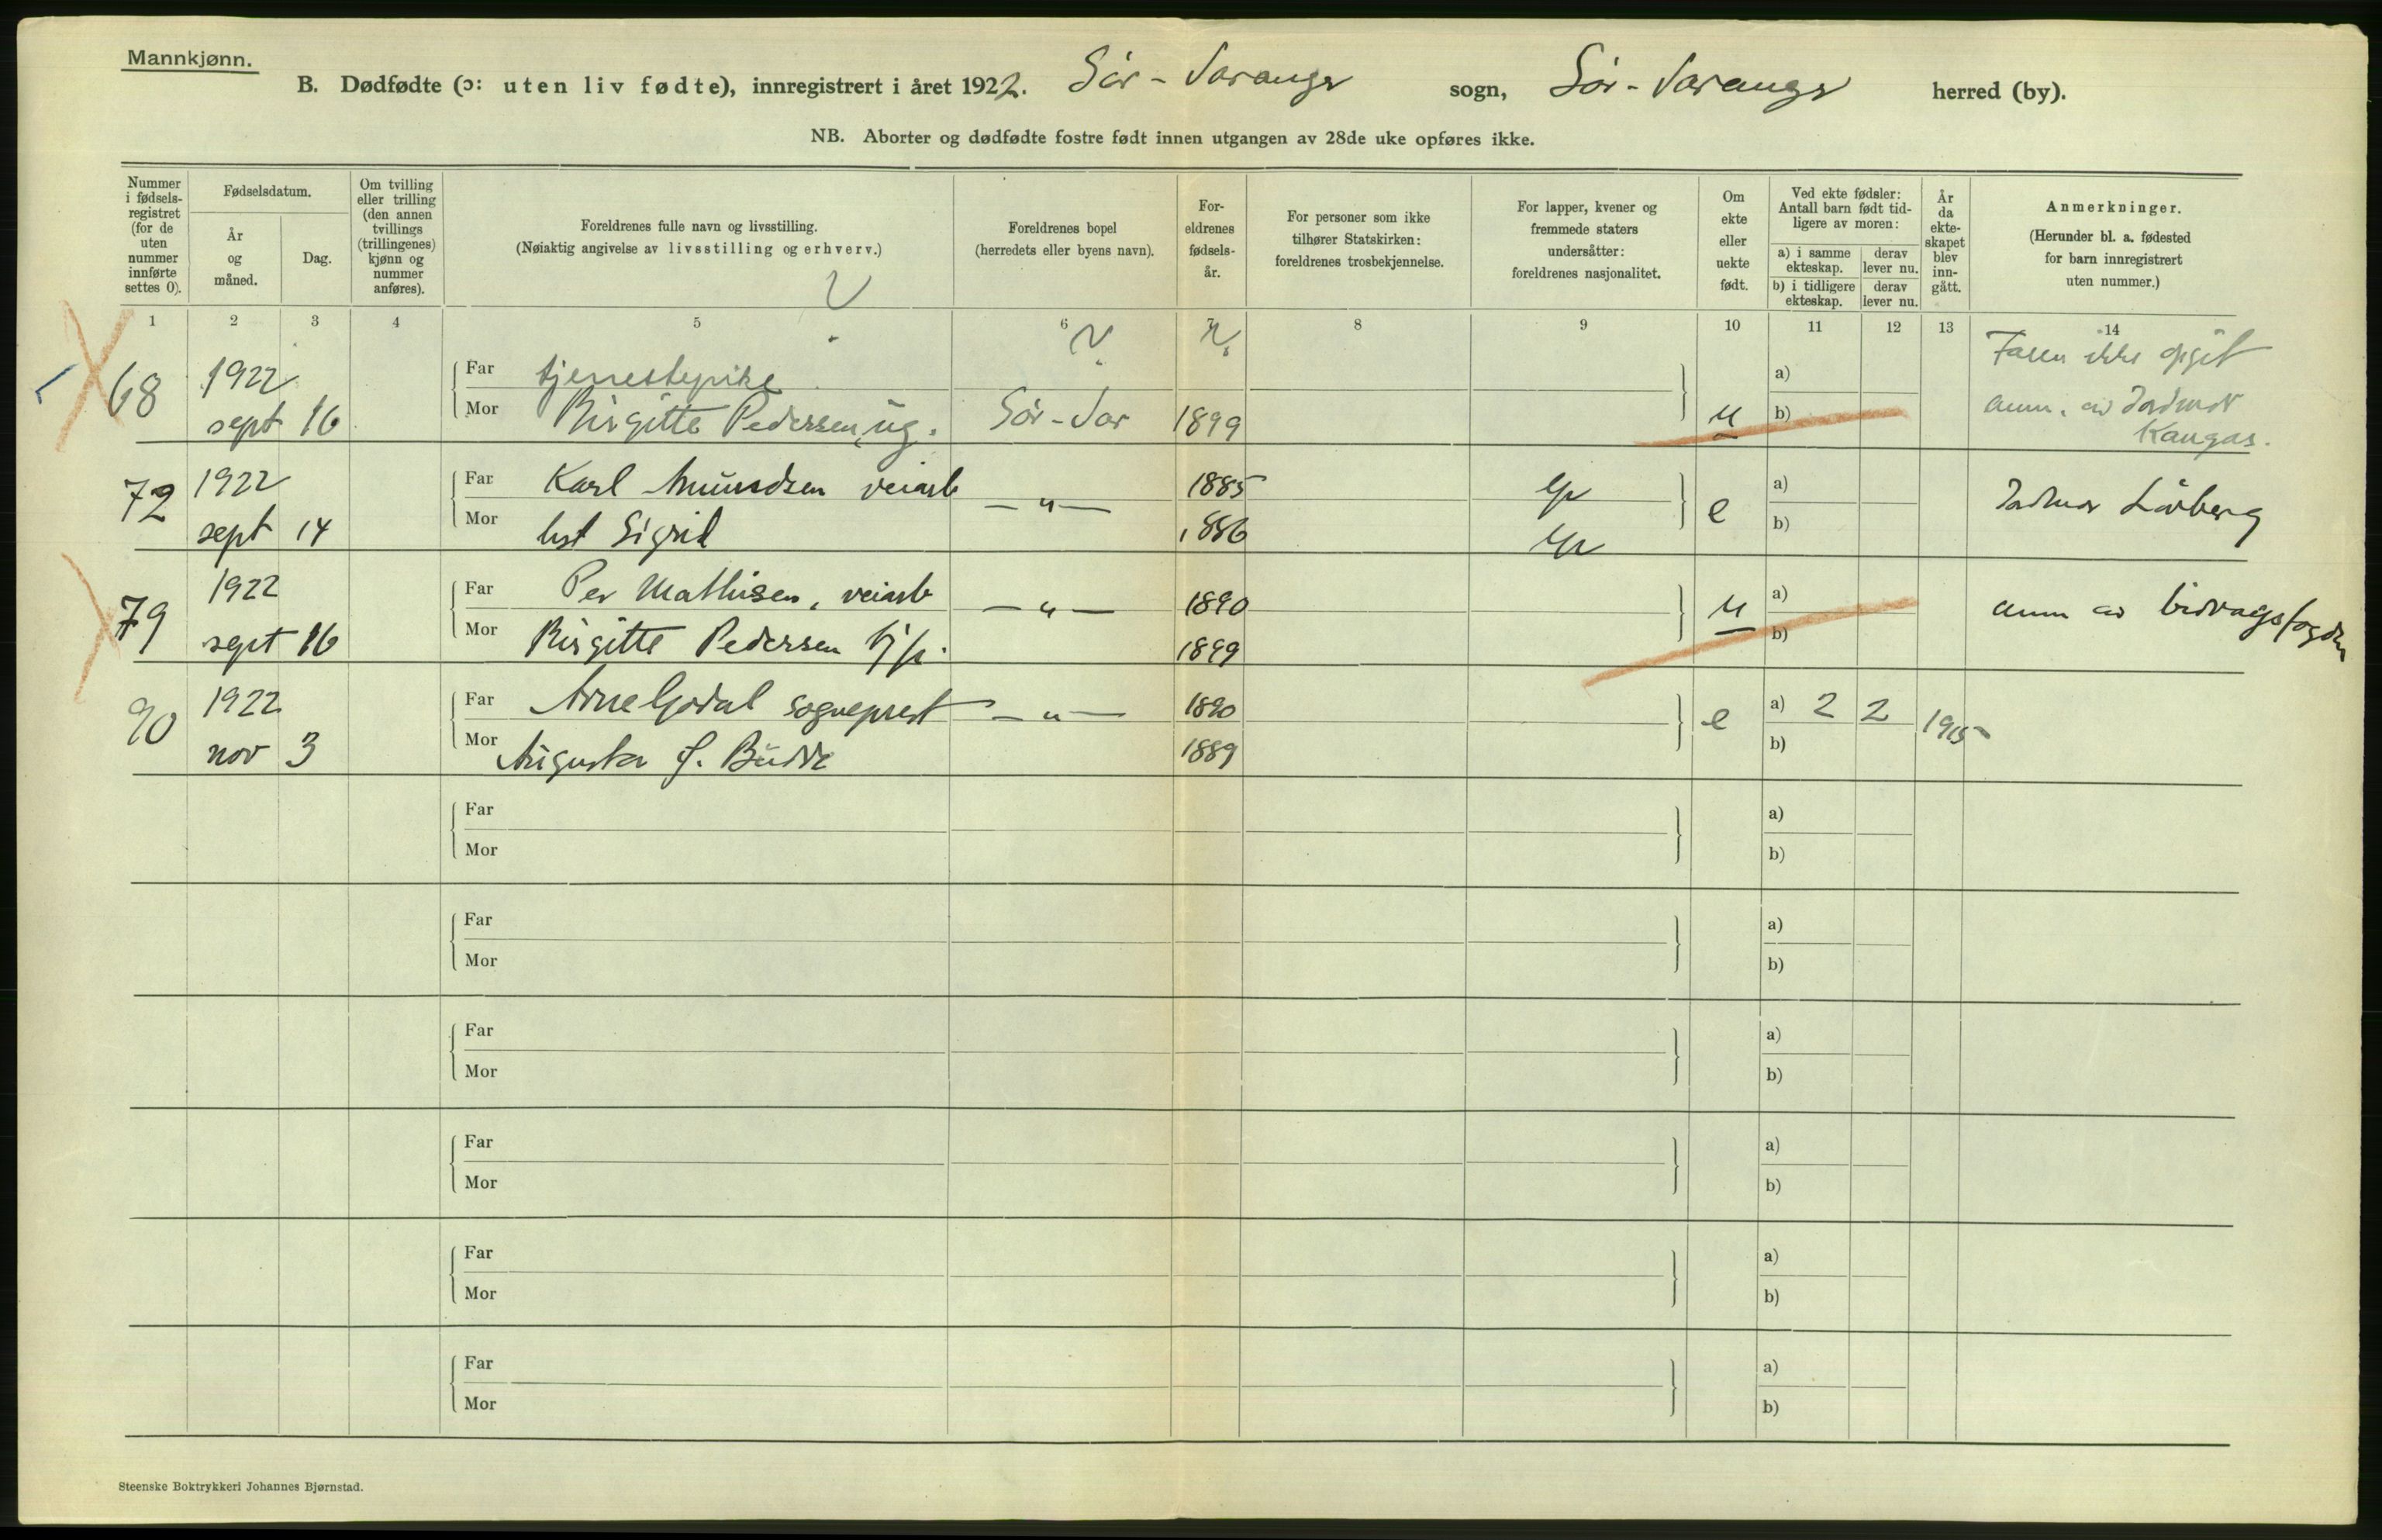 Mannkjønn.
B. Dødfødte (ɔ: uten liv fødte), innregistrert i året 1922. Sør-Varanger sogn, Sør-Varanger herred (by).
NB. Aborter og dødfødte fostre født innen utgangen av 28de uke opføres ikke.
Nummer i fødselsregistret (for de uten nummer innførte settes 0).
Fødselsdatum.
År og måned.
Dag.
Om tvilling eller trilling (den annen tvillings (trillingenes) kjønn og nummer anføres).
Foreldrenes fulle navn og livsstilling.
(Nøiaktig angivelse av livsstilling og erhverv.)
Foreldrenes bopel (herredets eller byens navn).
Foreldrenes fødselsår.
For personer som ikke tilhører Statskirken: foreldrenes trosbekjennelse.
For lapper, kvener og fremmede staters undersåtter: foreldrenes nasjonalitet.
Om ekte eller uekte født.
Ved ekte fødsler: Antall barn født tidligere av moren:
a) i samme ekteskap.
derav lever nu.
b) i tidligere ekteskap.
derav lever nu.
År da ekteskapet blev inngått.
Anmerkninger.
(Herunder bl. a. fødested for barn innregistrert uten nummer.)
1 2 3 4 5 6 7 8 9 10 11 12 13 14
68 1922 sept 16
Far tjenestepike
Mor Birgitte Pedersen, ug. Sör-Var 1899 u
a)
b)
Faren ikke opgit
anm. av Jordmor
Kangas.
72 1922 sept 14
Far Karl Amundsen veiarb —"— 1885
Mor hst Sigrid 1886 e
a)
b)
Jordmor Lövberg
79 1922 sept 16
Far Per Mathisen, veiarb —"— 1890
Mor Birgitte Pedersen tj.p. 1899 u
a)
b)
anm av bidragsfogden
90 1922 nov 3
Far Arne Gjødal sogneprest —"— 1890
Mor Augusta J. Budde 1889 e
a) 2 2 1915
b)
Far
Mor
a)
b)
Far
Mor
a)
b)
Far
Mor
a)
b)
Far
Mor
a)
b)
Far
Mor
a)
b)
Far
Mor
a)
b)
Steenske Boktrykkeri Johannes Bjørnstad.